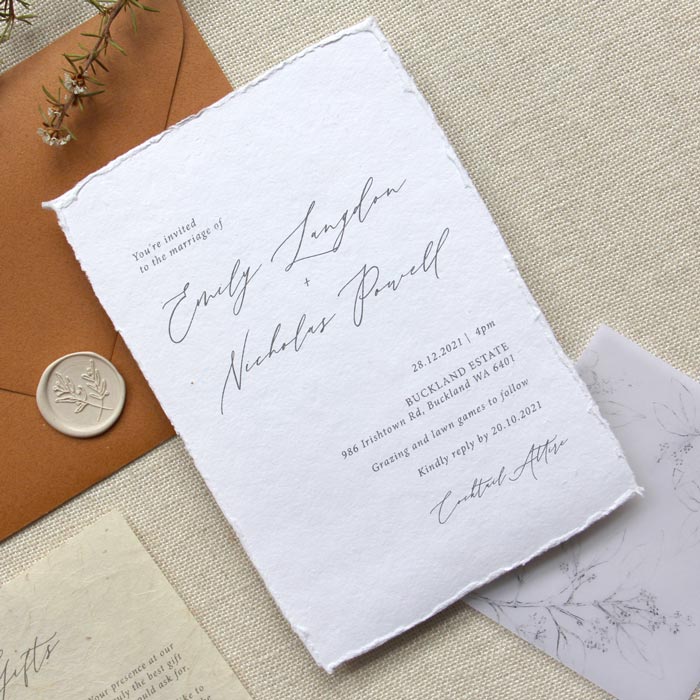 You're invited
to the marriage of
Emily Langdon
+
Nicholas Powell
28.12.2021 | 4pm
BUCKLAND ESTATE
986 Irishtown Rd, Buckland WA 6401
Grazing and lawn games to follow
Kindly reply by 20.10.2021
Cocktail Attire
Gifts
Your presence at our
truly the best gift
ask for.